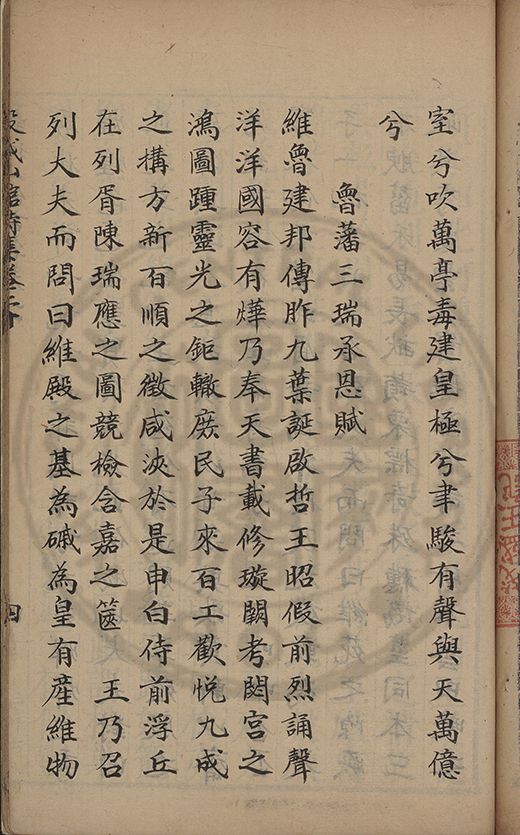 室兮吹萬亭毒建皇極兮聿駿有聲與天萬億
兮
魯藩三瑞承恩賦
維魯建邦傳胙九葉誕啟哲王昭假前烈誦聲
洋洋國容有燁乃奉天書載修璇闕考閟宮之
鴻圖踵靈光之鉅轍庶民子來百工歡悅九成
之構方新百順之徵咸浹於是申白侍前浮丘
在列胥陳瑞應之圖競檢含嘉之篋 王乃召
列大夫而問曰維殿之基為礆為皇有產維物
山館詩集卷
四